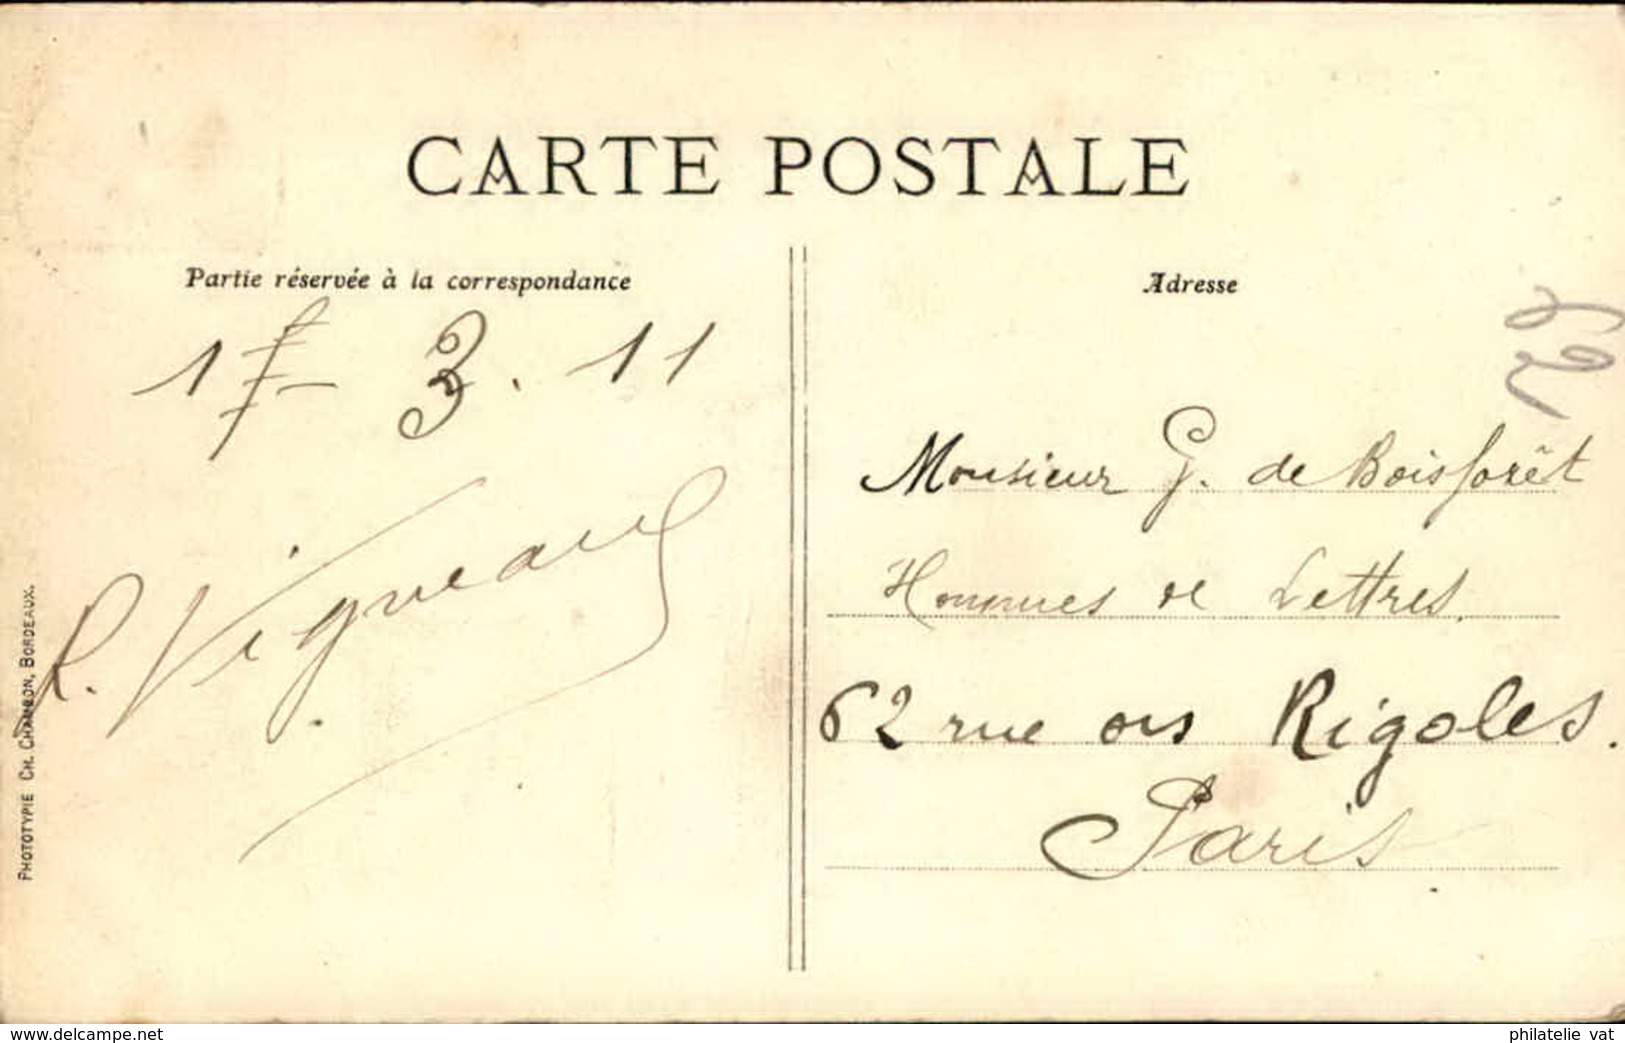 CARTE POSTALE
Partie réservée à la correspondance
Adresse
17 - 3 . 11
62
Monsieur G. de Boisforêt
Hommes de Lettres.
62 rue des Rigoles.
Paris.
R. Vigneau
PHOTOTYPIE CH. CHAMBON, BORDEAUX.
www.delcampe.net
philatelie vat